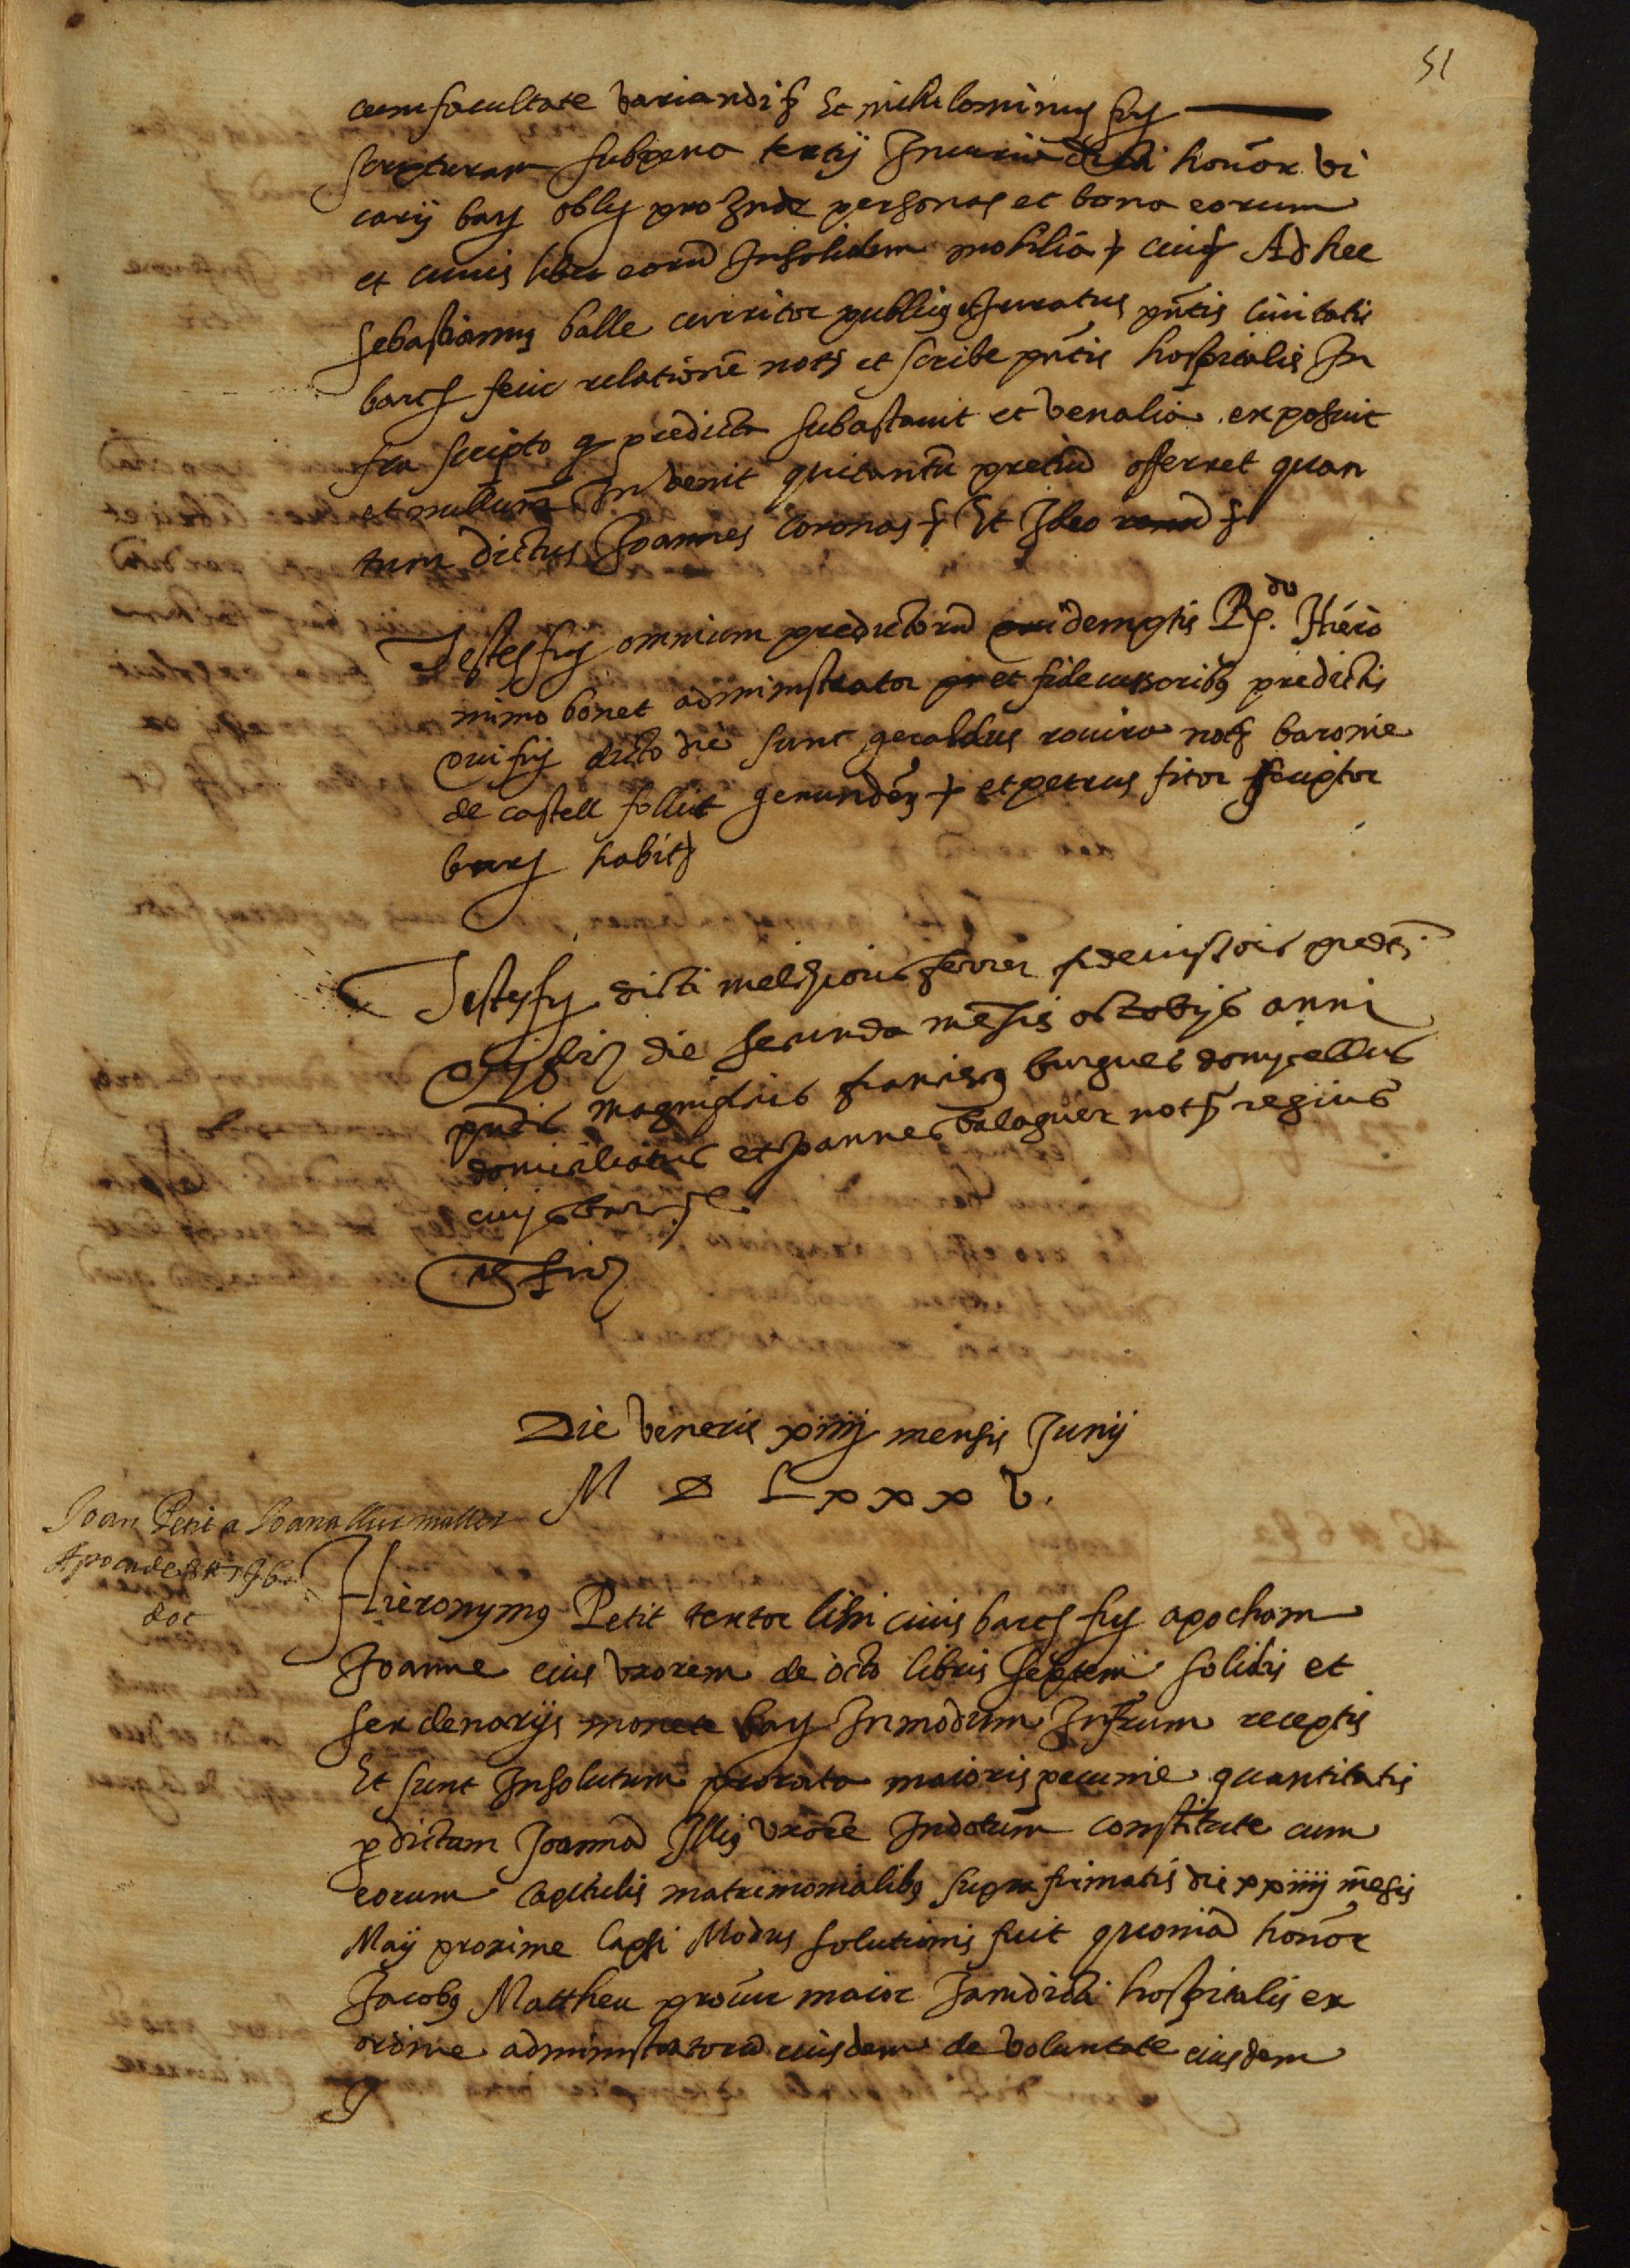 51
cum facultate variandi & Et nichilominus fiz
scripturam sub pena tertij In curia dicti honor. vi
carij barz oblig pro Inde personas et bona eorum
et cuiuis libet eorum Insolidum mobilia & cuiz Ad hec
Sebastianus balle curritor publicus et Juratus pntis ciuitatis
barcz fecit relationē notz et scribe pntis hospitalis In
fra scripto q predicta subastauit et venalia exposuit
et nullum Invenit qui tantū pretiū offerret quan
tum dictus Joannes Coronas & Et Ideo &
Testes fiz omnium predictorū demptis Rdo. Hiero
nimo bonet administrator et fideiussoribz predictis
qui fiz dicto die sunt geraldus rouira notz baronie
de castell follit gerundez & et petrus fitor scriptor
barz habitz
Testes fiz dicti melchioris ferrer fideiussoris predti
qui firz die secunda mēsis octobris anni
pndis magnificus franciscz burgues domicellus
domiciliatus et Joannes balaguer notz regius
ciuis barz
Die Veneris xiiij mensis Junij
M D Lxxx v.
Joan Petit a Joana lluc muller
Apoca de
dot
Hieronymz Petit textor lini ciuis barcz fiz apocham
Joanne eius uxorem de octo libris septem solidis et
sex denarijs monete barz In modum Infrum receptis
Et sunt Insolutum prorata maioris pecunie quantitatis
p dictam Joannā Illiz uxorē Indotum constitute cum
eorum capitulis matrimonialibz supra firmatis die xxiiij mēsis
Maij proxime lapsi Modus solutionis fuit quoniā honor
Jacobz Mattheu procur maior Jamdicti hospitalis ex
ordine administratorū eiusdem de voluntate eiusdem